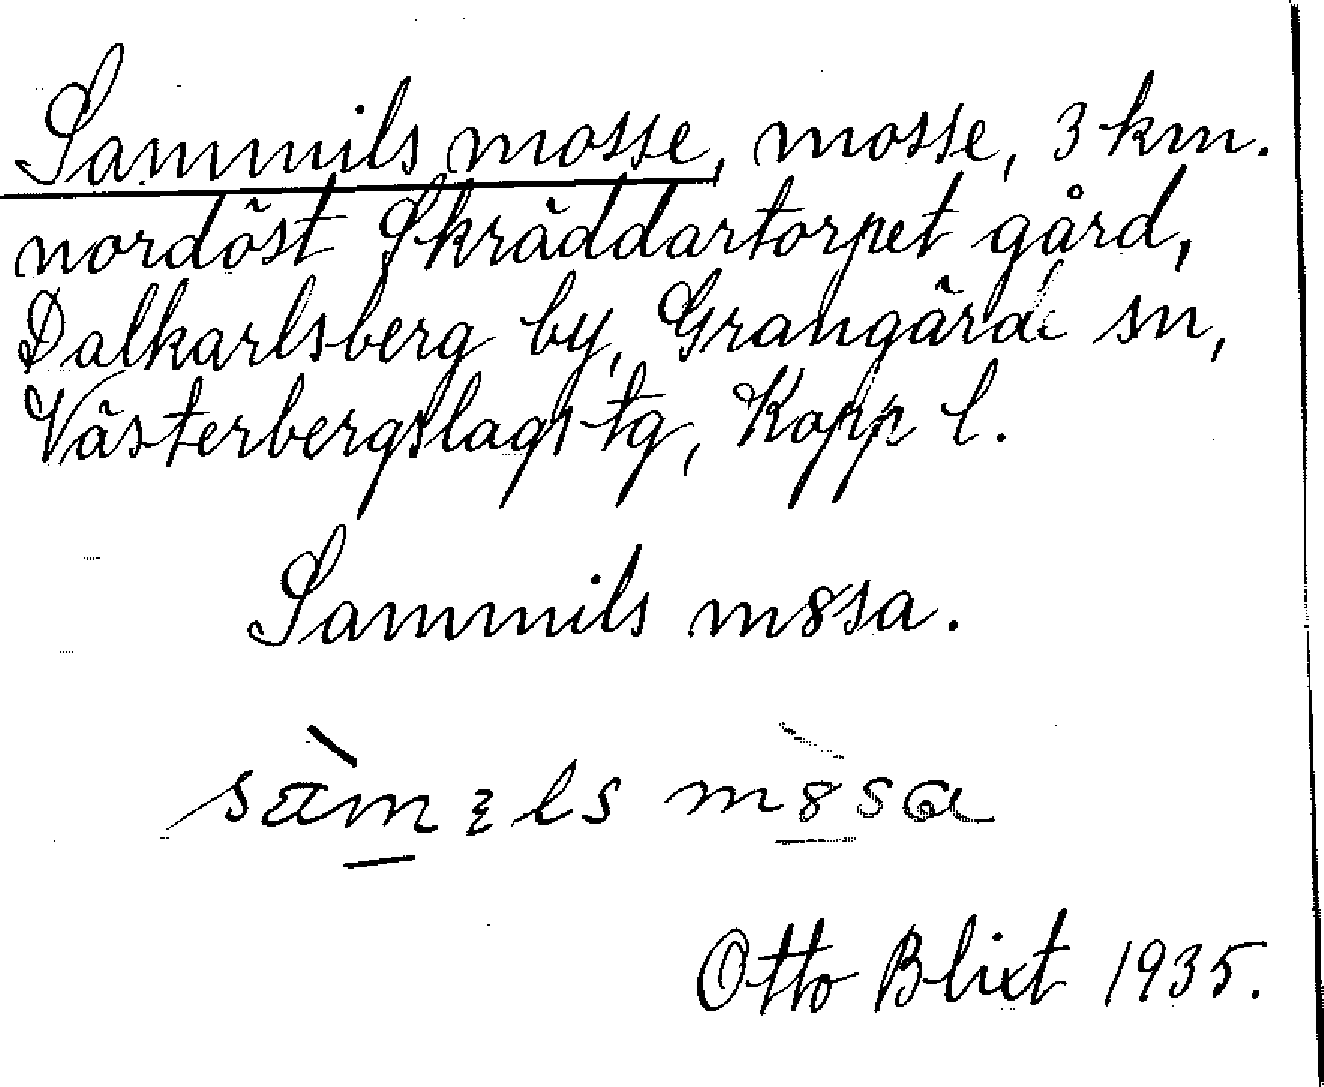 Sammils mosse, mosse, 3 km.
nordöst Skräddartorpet gård,
Dalkarlsberg by, Grangärde sn,
Västerbergslags tg, Kopp l.
Sammils m8sa.
sàmɛls m8̀sa
Otto Blixt 1935.